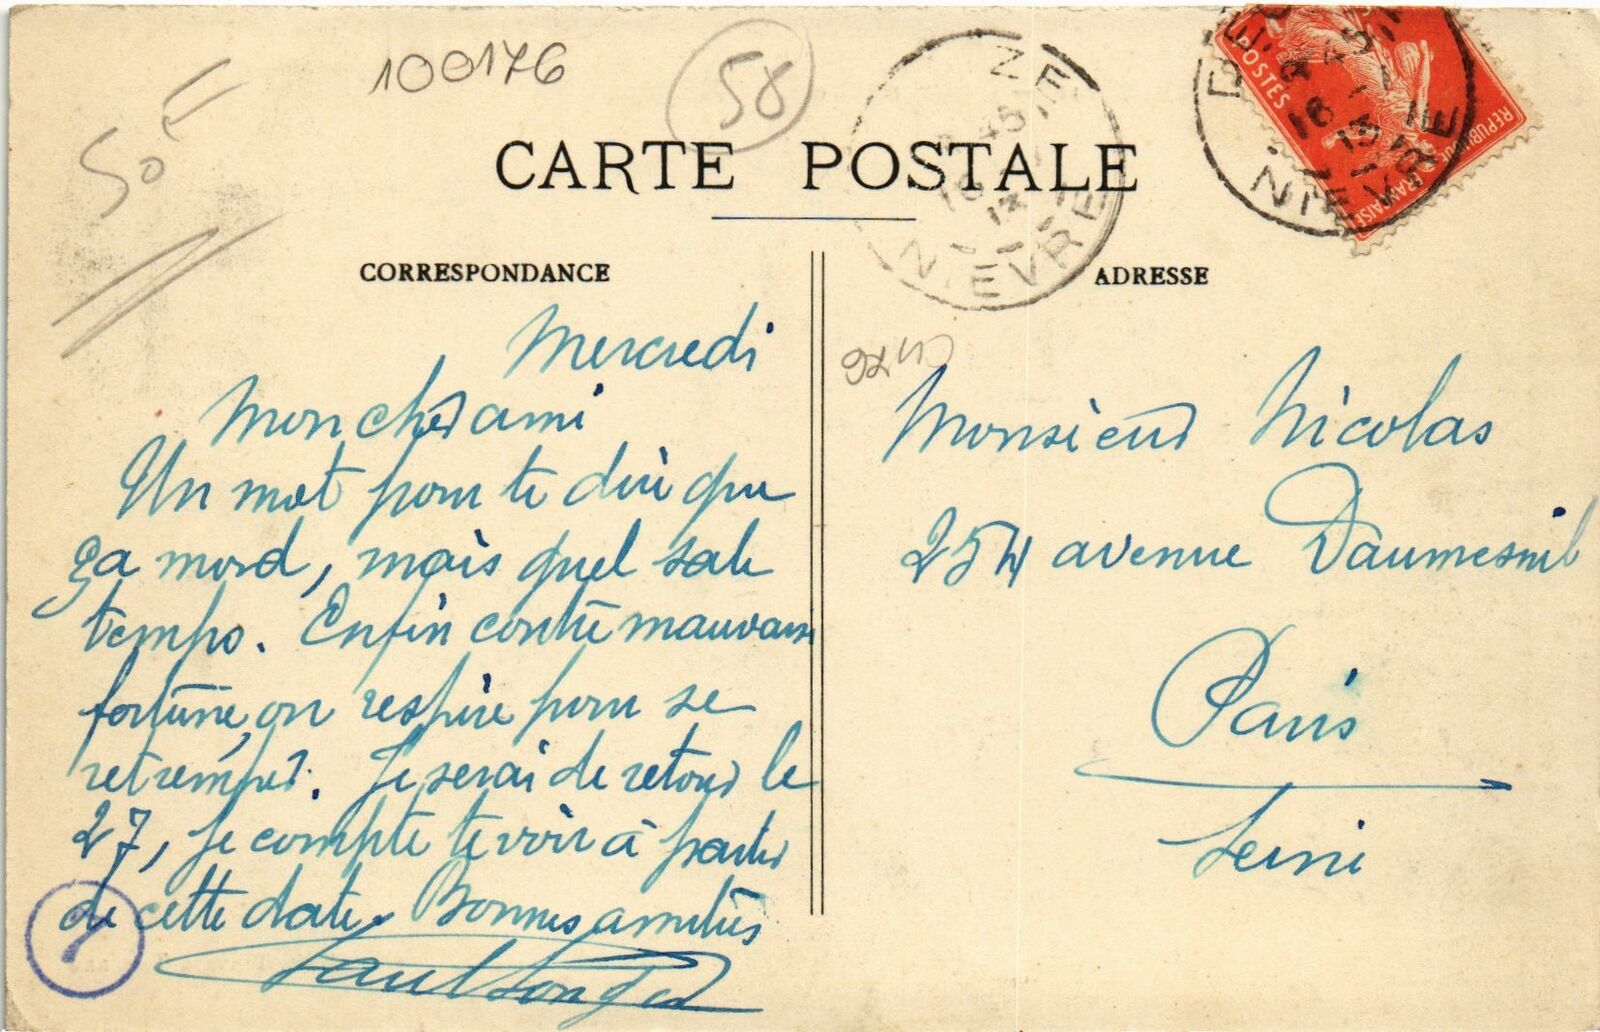 100176
58
50 F
CARTE POSTALE
CORRESPONDANCE
ADRESSE
NIÈVRE
POSTES
REPUBLIQUE FRANÇAISE
18
13
NIÈVRE
Mercredi
Mon cher ami
Un mot pour te dire que
ça mord, mais quel sale
temps. Enfin contre mauvaise
fortune, on respire pour se
retremper. Je serai de retour le
27, je compte te voir à partir
de cette date. Bonnes amitiés
Monsieur Nicolas
254 avenue Daumesnil
Paris
Seine